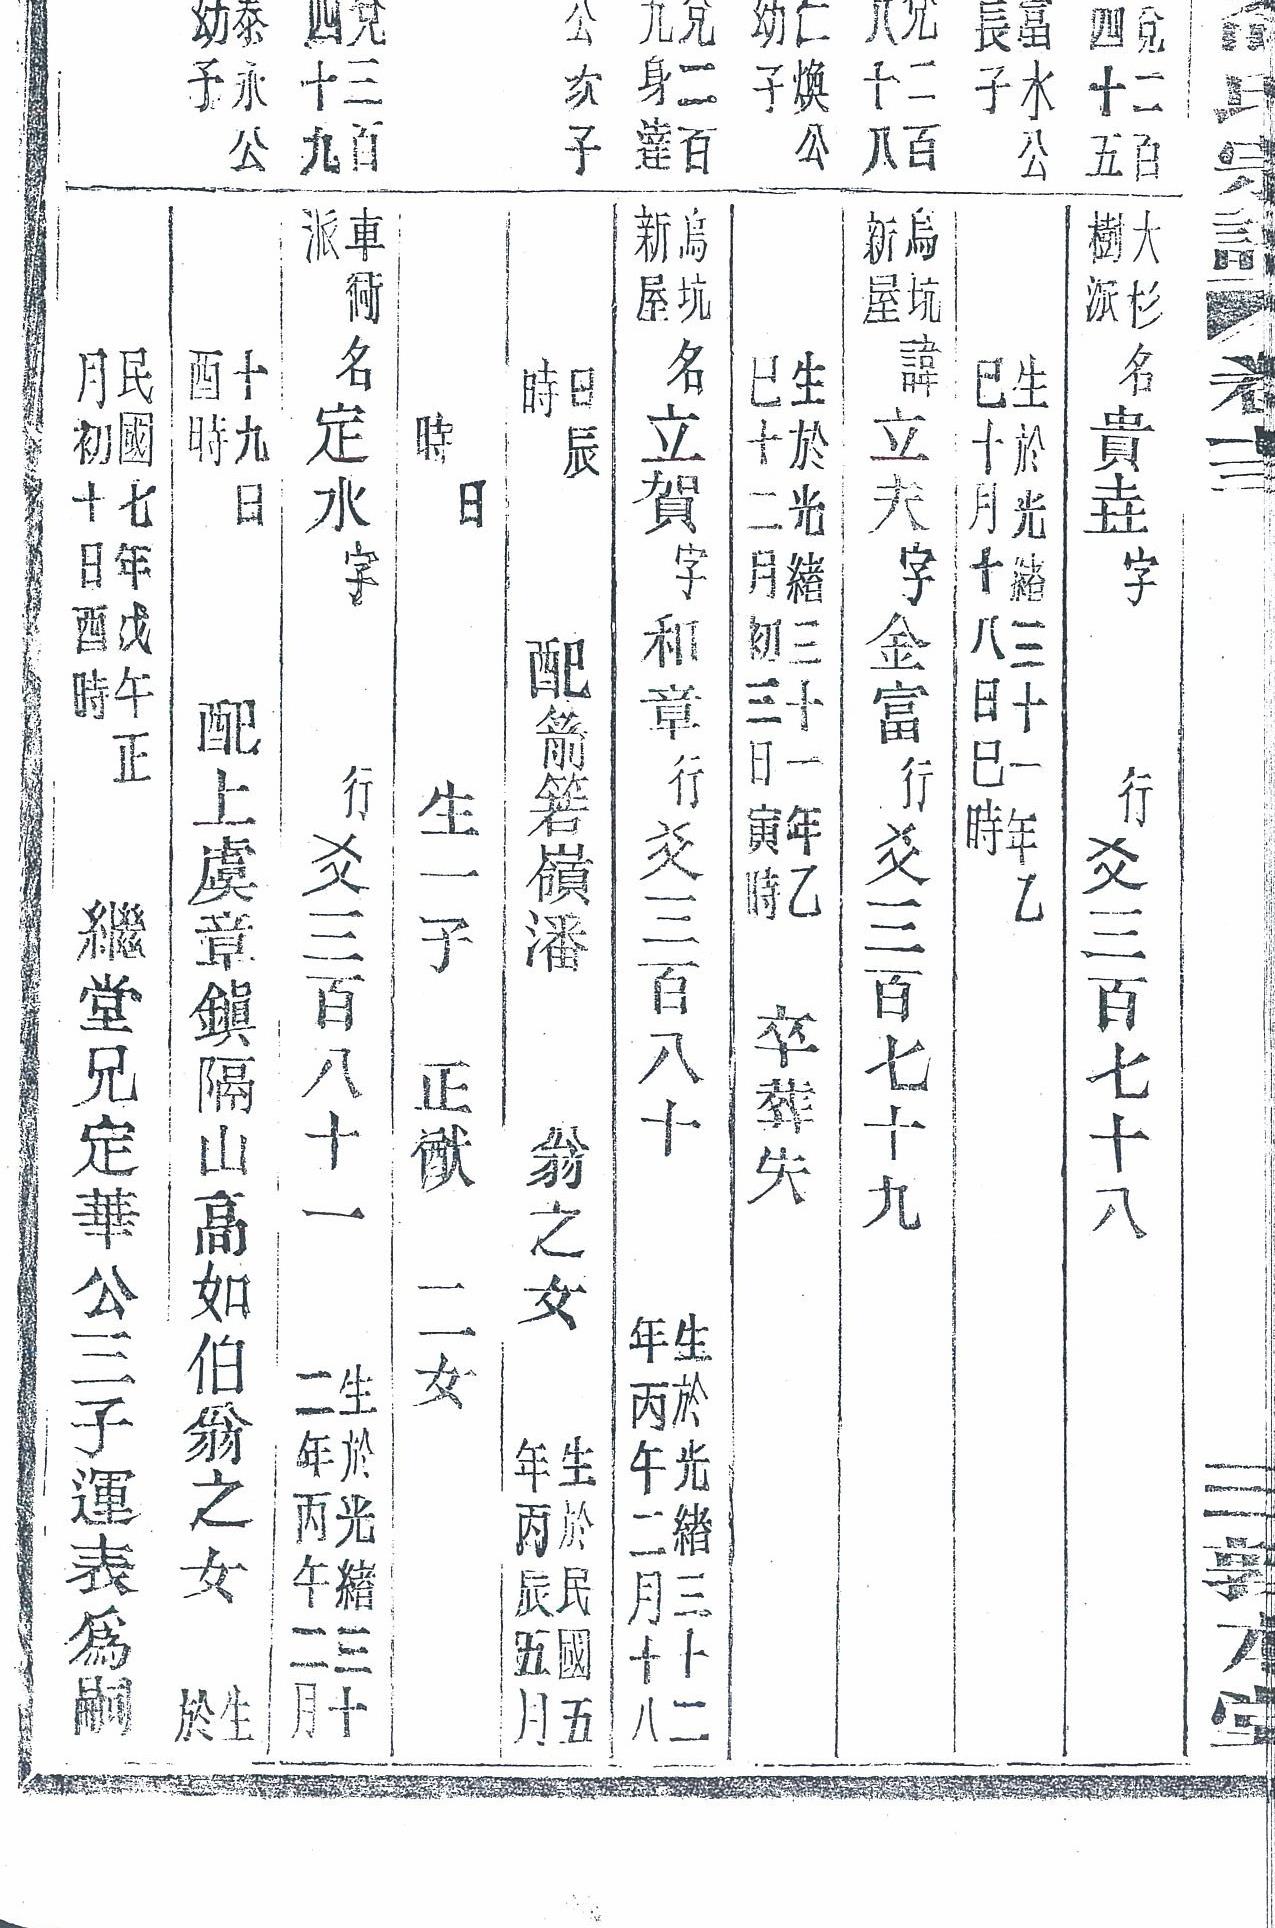 氏宗譜 卷十三
三 敦本堂
兌二百
四十五
富水公
長子
兌二百
八十八
仁煥公
幼子
兌二百
九身達
公次子
兌三百
四十九
泰永公
幼子
大杉
樹派
名貴垚字 行爻三百七十八
生於光緒三十一年乙
巳十月十八日巳時
烏坑
新屋
諱立夫字金富行爻三百七十九
生於光緒三十一年乙
巳十二月初三日寅時
卒葬失
烏坑
新屋
名立賀字和章行爻三百八十
生於光緒三十二
年丙午二月十八
日辰
時
配箭箬嶺潘 翁之女
生於民國五
年丙辰五月
日
時
生一子 正猷 二女
車衖
派
名定水字 行爻三百八十一
生於光緒三十
二年丙午二月
十九日
酉時
配上虞章鎭隔山高如伯翁之女
生
於
民國七年戊午正
月初十日酉時
繼堂兄定華公三子運表爲嗣